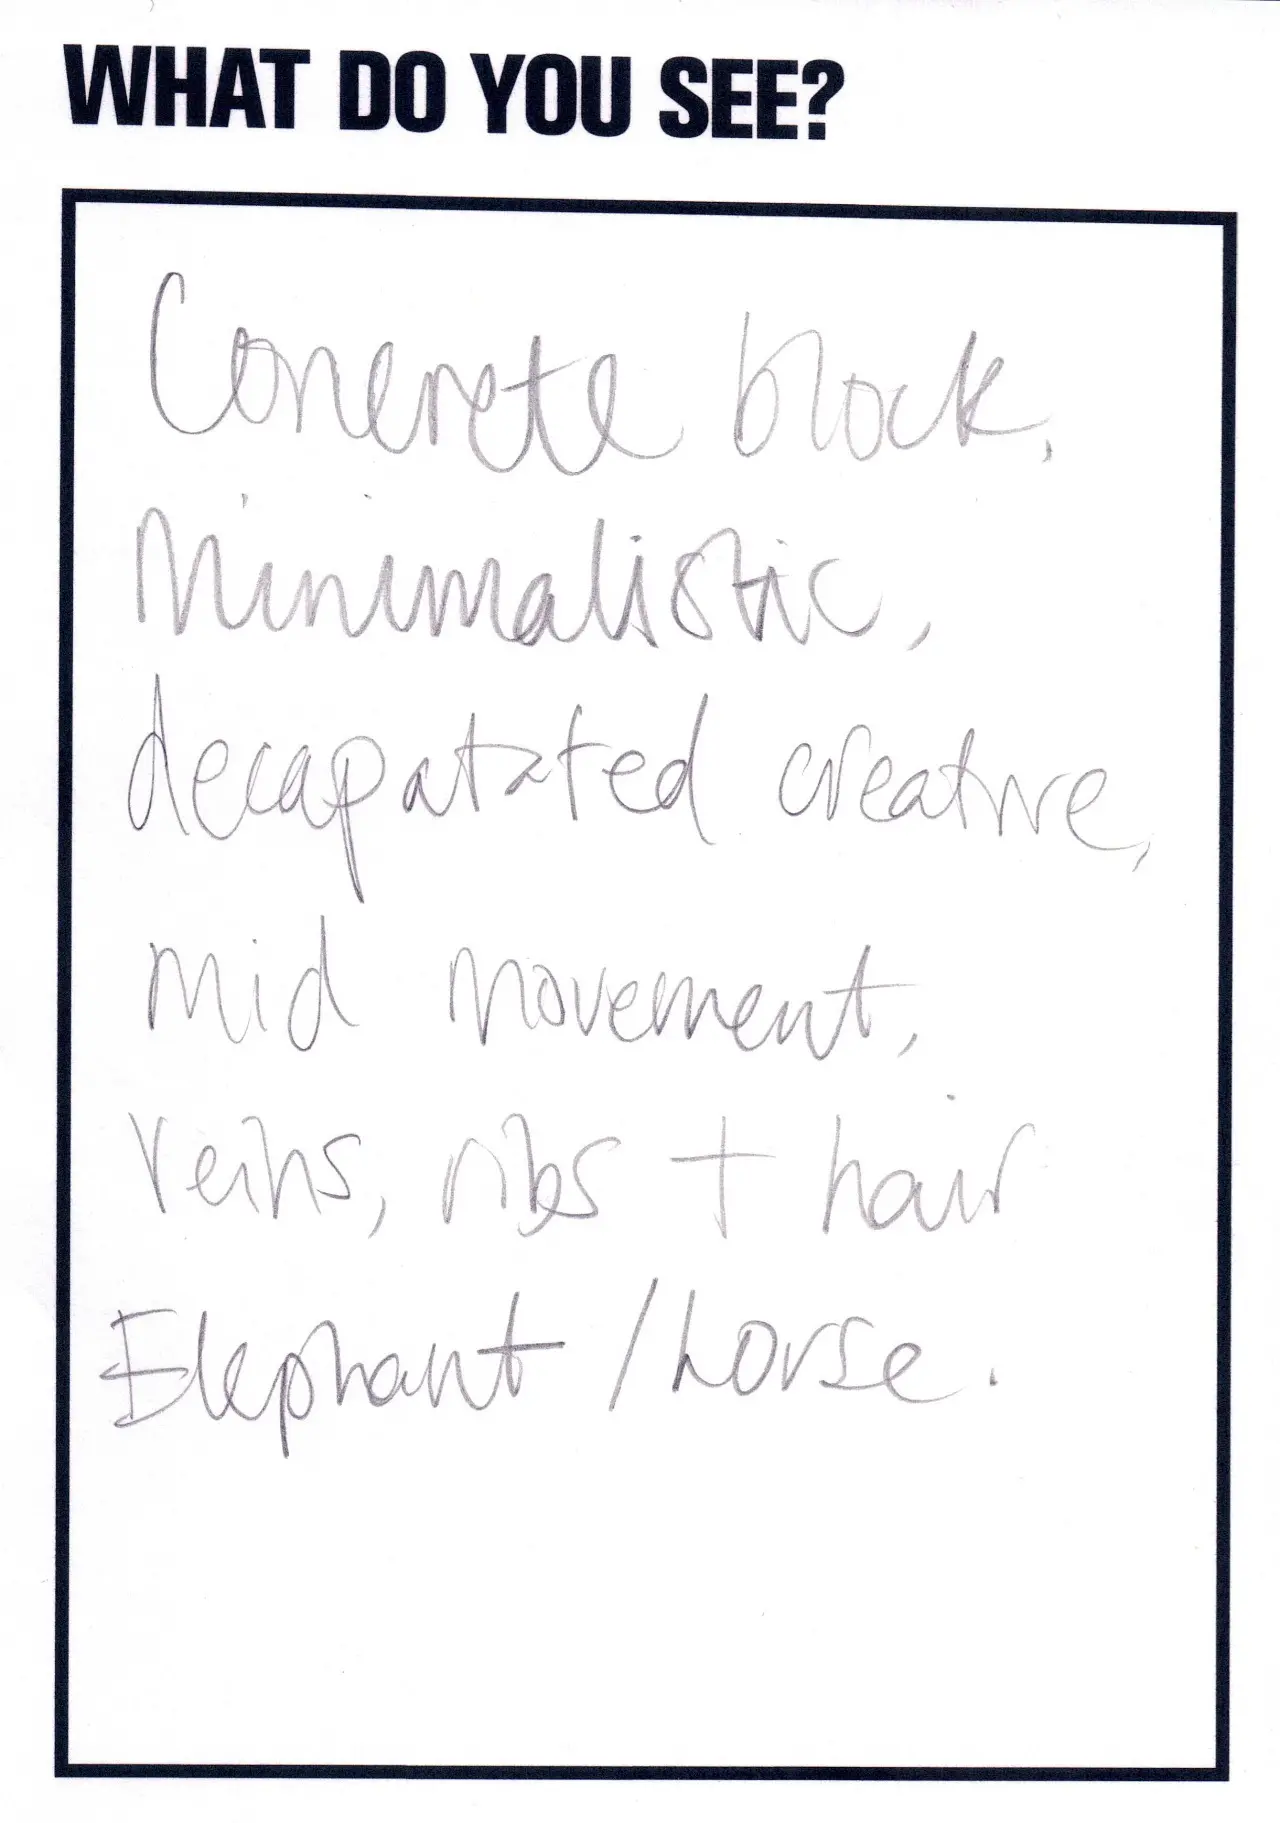 WHAT DO YOU SEE?
Concrete block,
Minimalistic,
decapatated creative,
mid movement,
veins, ribs + hair
Elephant / horse.